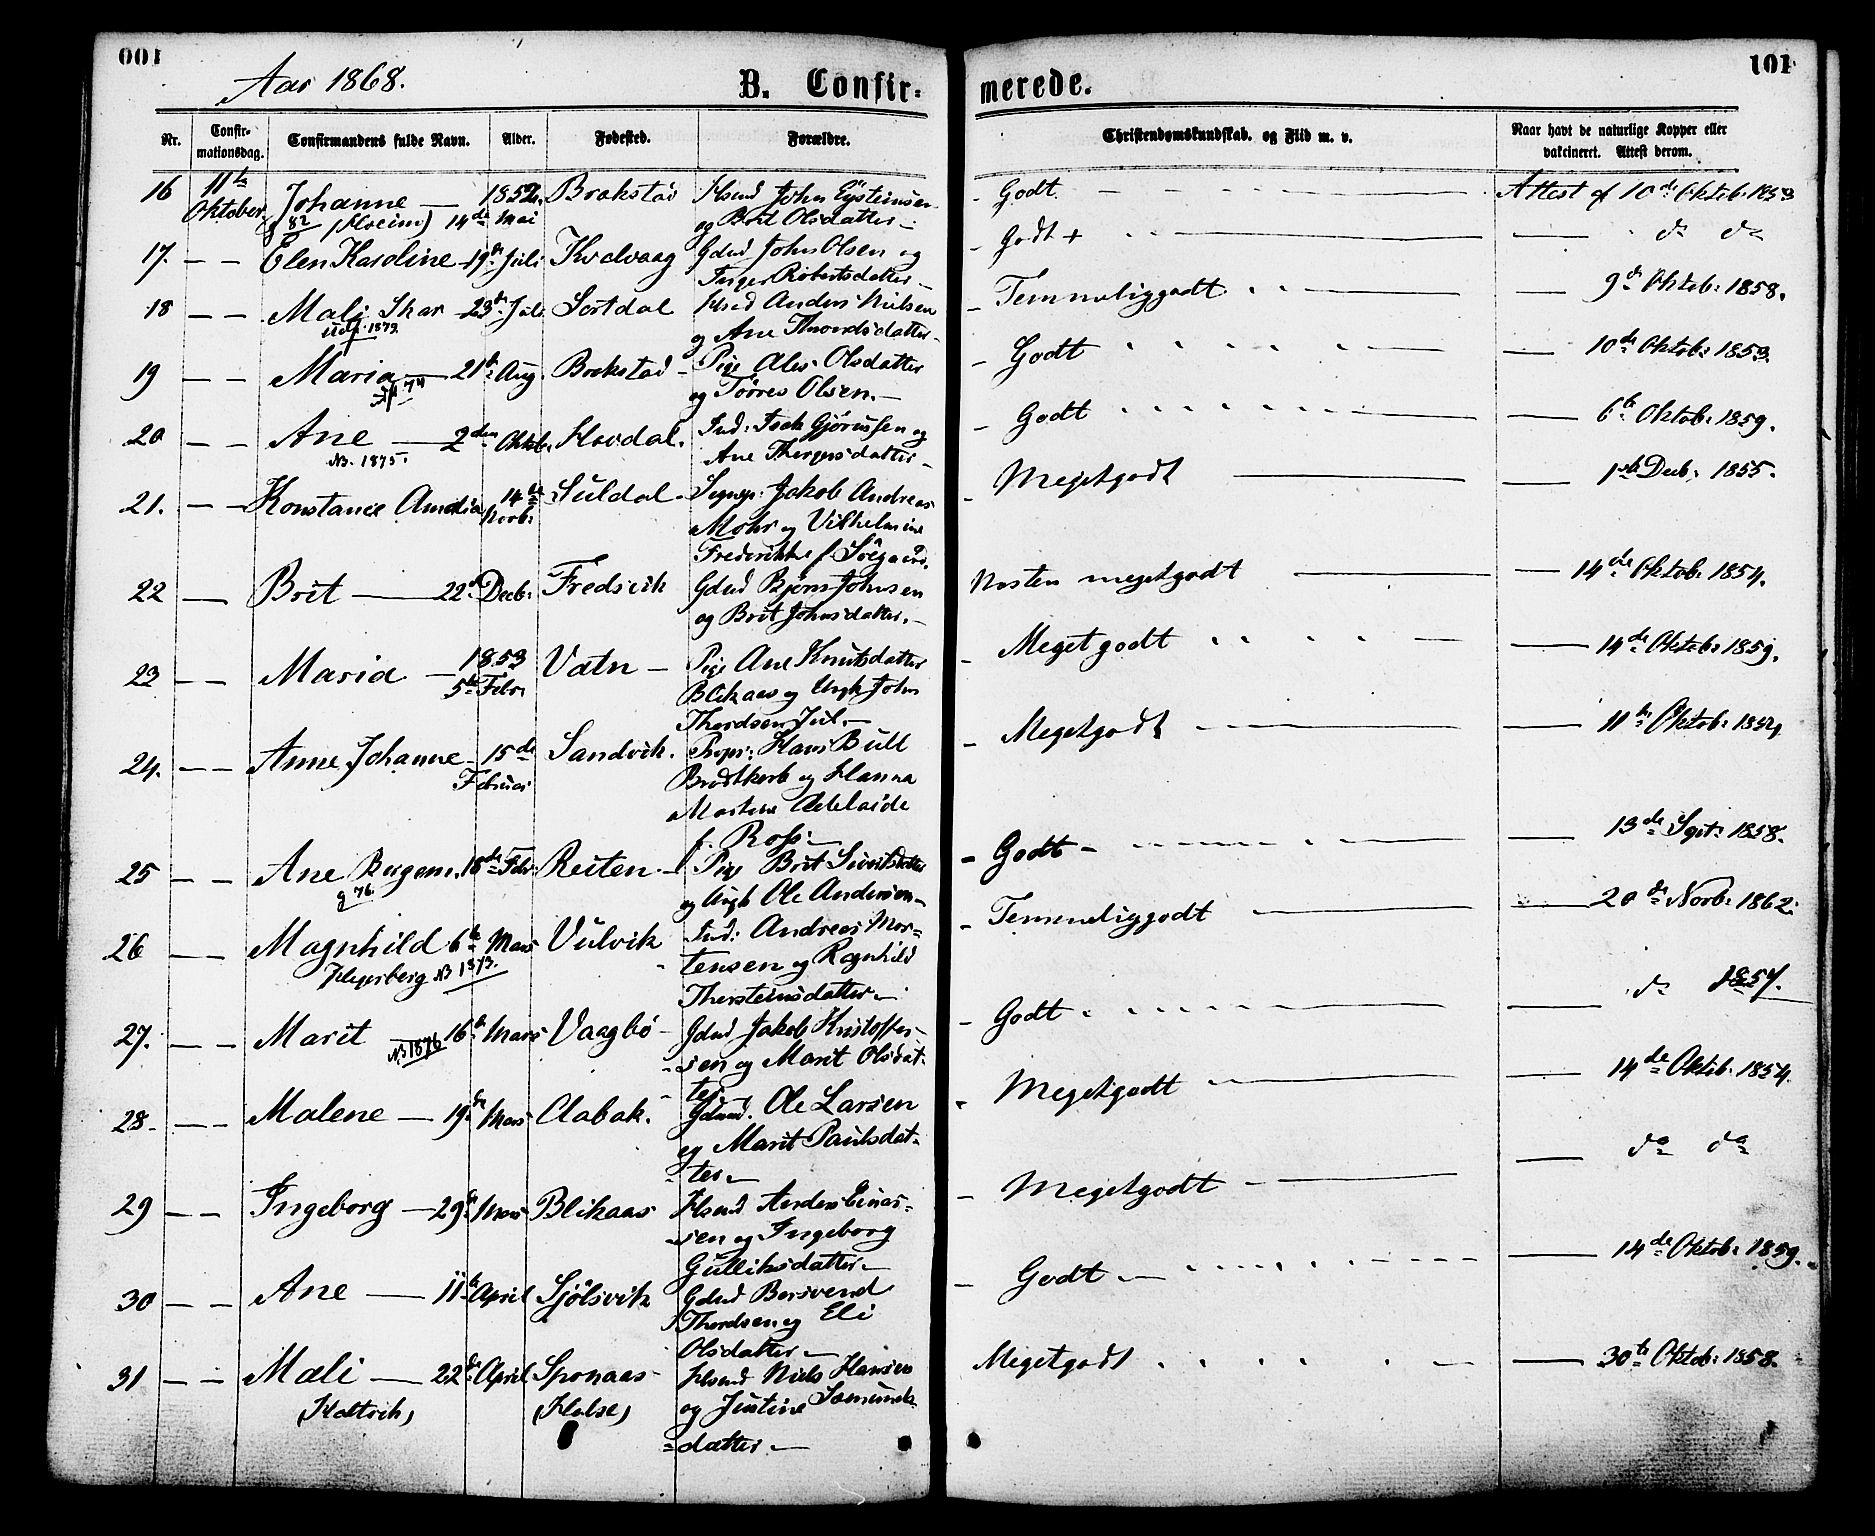 001
101
Aar 1868.
B. Confir-
merede.
Nr.
Confir-
mationsdag.
Confirmandens fulde Navn.
Alder.
Fødested.
Forældre.
Christendomskundskab. og Flid m. v.
Naar havt de naturlige Kopper eller
vakcineret. Attest derom.
16 11te Johanne — 1852 Brokstad Husmd John Eysteinsen
Oktober 14de Mai og Brit Olsdatter —
- Godt — Attest af 10de Oktob. 1853
17. — — Elen Karoline 19de Juli Kvalvaag Gdmd John Olsen og
Inger Robertsdatter —
- Godt + — do do
18 — — Mali Skar 23de Juli Sortdal Husmd Anders Nielsen
1873. og Ane Thorsdatter —
- Temmeliggodt — 9de Oktob: 1858.
19 — — Maria — 21de Aug. Brokstad — Pige Ales Olsdatter
74 og Tørres Olsen. —
- Godt — 10de Oktob: 1853
20 — — Ane — 2den Oktob. Hovdal. Ind: Isak og
N. 1875. Ane datter —
- Godt — 6te Oktob: 1859.
21. — — Konstance Amalia 14de Suldal Jakob Andreas
Novb: Mohr og Vilhelmine
Frederikke f. Søegaard.
- Megetgodt — 1ste Decb: 1855.
22 — — Brit — 22de Decb: Fredsvik Gdmd Bjørn Johnsen
og Brit Johnsdatter. —
Næsten megetgodt — 14de Oktob: 1854.
23 — — Maria — 1853 Vatn — Pige Ane Knutsdatter
5te Febr. Blikaas og Ungk John
Thordsen Jul. —
- Megetgodt — 14de Oktob: 1859.
24. — — Anne Johanne 15de Sandvik. Propr: Hans Bull
Februar Brodtkorb og Hanna
Martine Adelaide
f. Ross —
- Megetgodt — 11te Oktob: 1854
25 — — Ane Bergem. 18de Febr Reiten — Pige Brit Sivertsdatter
g 76 og Ungk Ole Andersen —
- Godt — 13de Sept: 1858.
26 — — Magnhild 6te Mars Vulvik Ind: Andreas Mor-
N 1873. tensen og Ragnhild
Thorsteinsdatter —
- Temmeliggodt — 20de Novb: 1862.
27. — — Marit 16de Mars Vaagbø — Gdmd Jakob Kristoffer-
N 1876 sen og Marit Olsdat-
ter —
- Godt — do 1857.
28 — — Malene — 19de Mars Aabak. Gdmd. Ole Larsen
og Marit Paulsdat-
ter —
- Megetgodt — 14de Oktob. 1854.
29 — — Ingeborg — 29de Mars Blikaas Husmd Anders Einar-
sen og Ingeborg
Gulliksdatter —
- Megetgodt — do do
30 — — Ane — 11te April Sjølsvik Gdmd Bersvend
Thordsen og Eli
Olsdatter —
- Godt — 14de Oktob: 1859.
31 — — Mali — 22de April Sponaas Husmd Niels Hansen
(Holtvik) (Halse) og Justine Samunds-
datter —
Megetgodt — 30te Oktob: 1858.